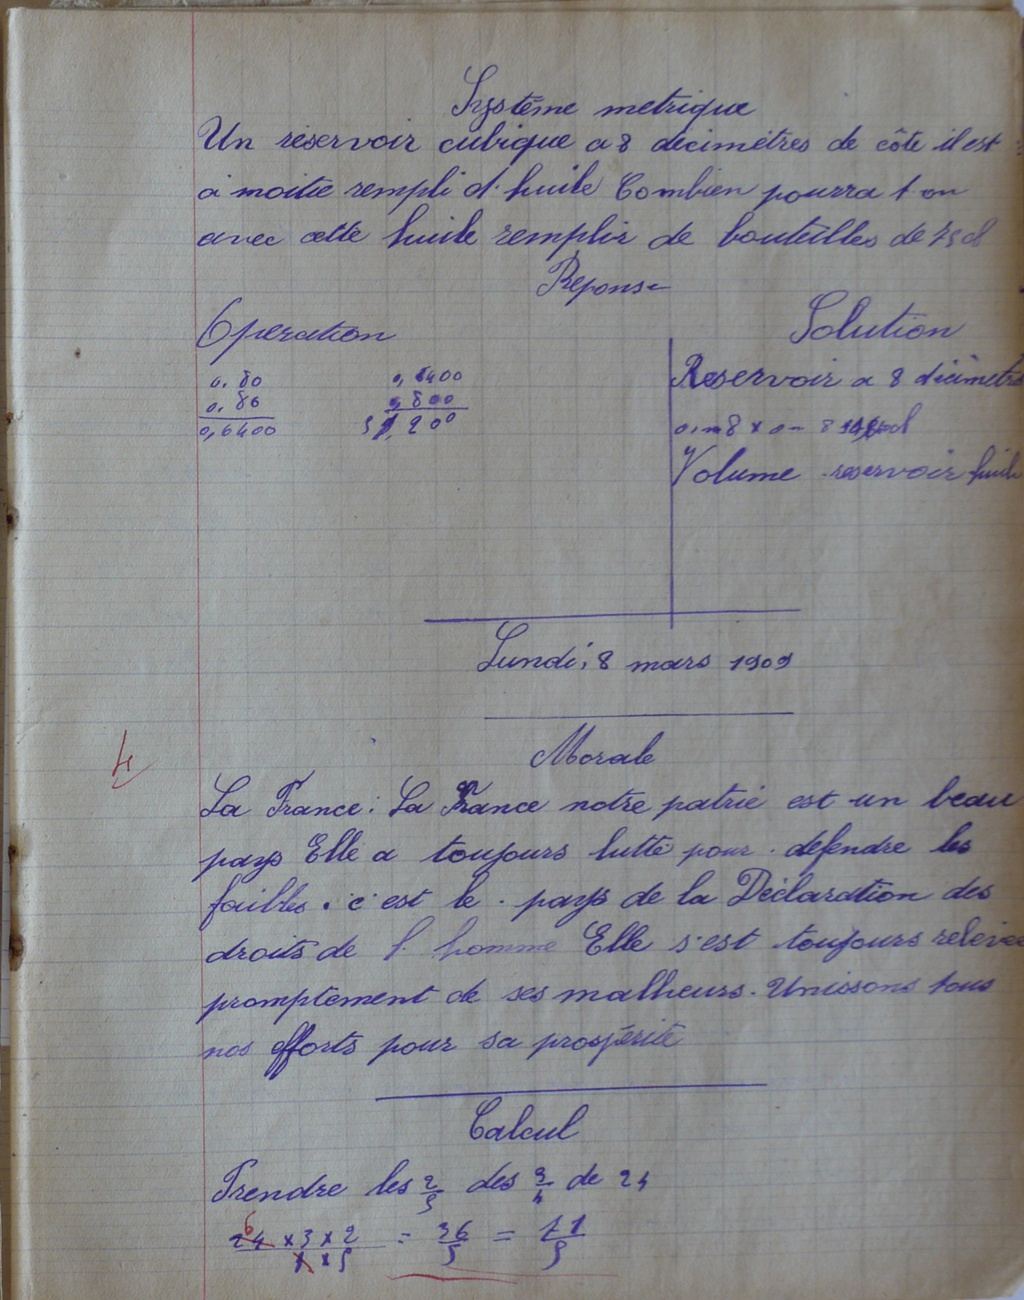 Système metrique
Un réservoir cubique a 8 décimètres de côte il est
à moitie rempli d'huile Combien pourra t on
avec cette huile remplir de bouteilles de 75 cl
Réponse
Opération
Solution
0,80
0,80
0,6400
0,6400
0,800
200
Reservoir a 8 décimètre
0,m8 x 0m 8
Volume reservoir huile
Lundi, 8 mars 1909
4
Morale
La France: La France notre patrie est un beau
pays Elle a toujours lutté pour défendre les
faibles. c'est le pays de la Déclaration des
droits de l'homme Elle s'est toujours relevée
promptement de ses malheurs. Unissons tous
nos efforts pour sa prospérité
Calcul
Prendre les 2/5 des 3/4 de 24
6
24 x 3 x 2 / 4 x 5 = 36/5 = 71/5